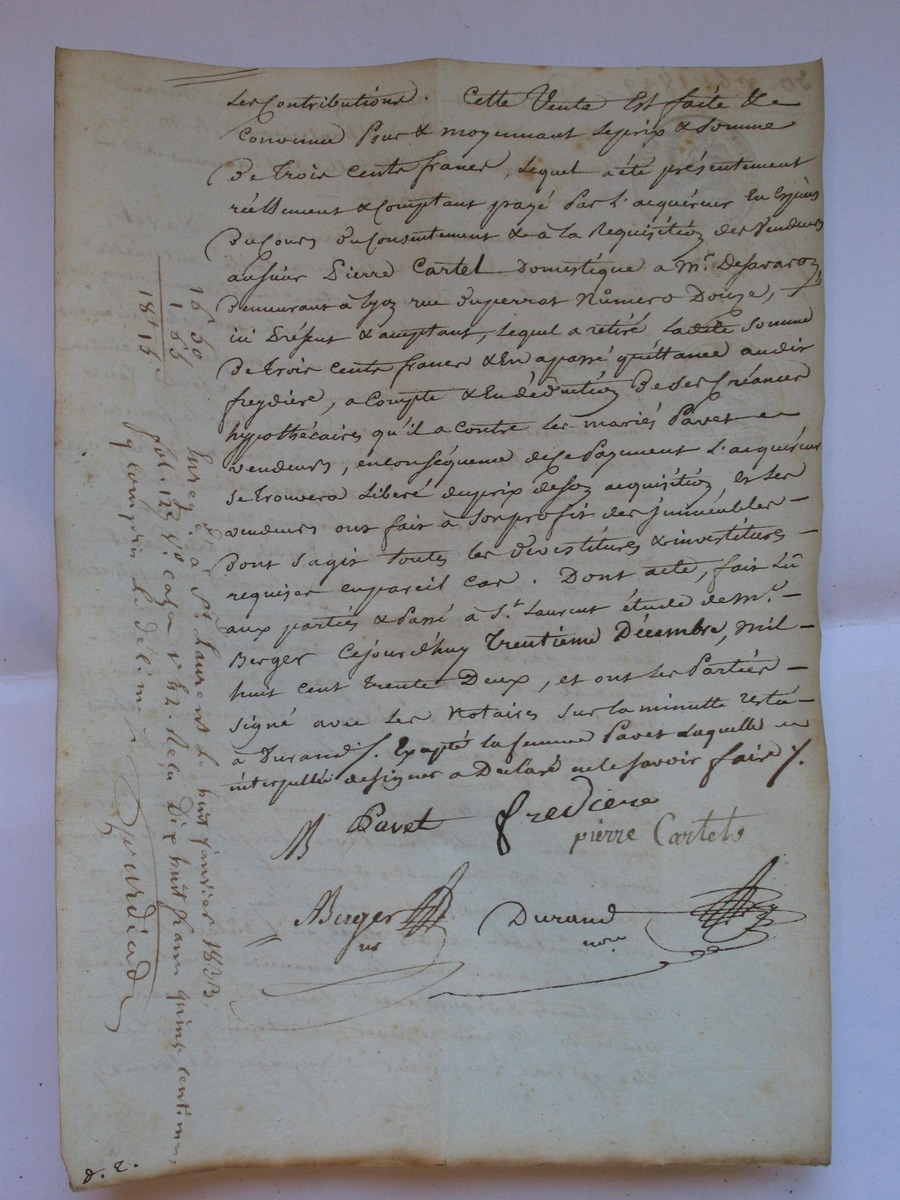 les Contributions. Cette Vente Est faite &
Convenue Pour & moyennant le prix & Somme
De trois Cents francs, lequel a été présentement
réellement & Comptant payé Par l'acquéreur En Espèces
Du Cours du Consentement & à la Requisition des Vendeurs
au sieur Pierre Cartel Domestique a Mr.
Demeurant à Lyon rue Duperrat Numero Douze,
ici Présent & acceptant, lequel a retiré ladite Somme
De trois Cents francs & En a passé quittance audit
freydière, a Compte & En déduction De ses Créances
hypothécaires qu'il a Contre les mariés Pavet
vendeurs, en Conséquence de ce Payement l'acquéreur
se trouvera Libéré du prix de son acquisition et les
vendeurs ont fait à son profit des immeubles
Dont s'agit toutes les devestitures & investitures
requises en pareil Cas. Dont acte, fait Lû
aux parties & Passé à St. Laurent étude de Me.
Berger Cejourd'huy trentieme Décembre, mil
huit Cent trente Deux, et ont les Parties
signé avec les Notaires sur la minutte restée
à Durand /. Excepté la femme Pavet Laquelle
interpellée de signer a Déclaré ne le savoir faire /.
Pavet fredière
pierre Cartel
Berger Durand
nre nore
Enregé. à St. Laurent le huit janvier 1833,
fol. 122 Vo. Case Reçu Dix huit francs quinze Centimes,
y compris le décime
16 50
1 65
18f 15c